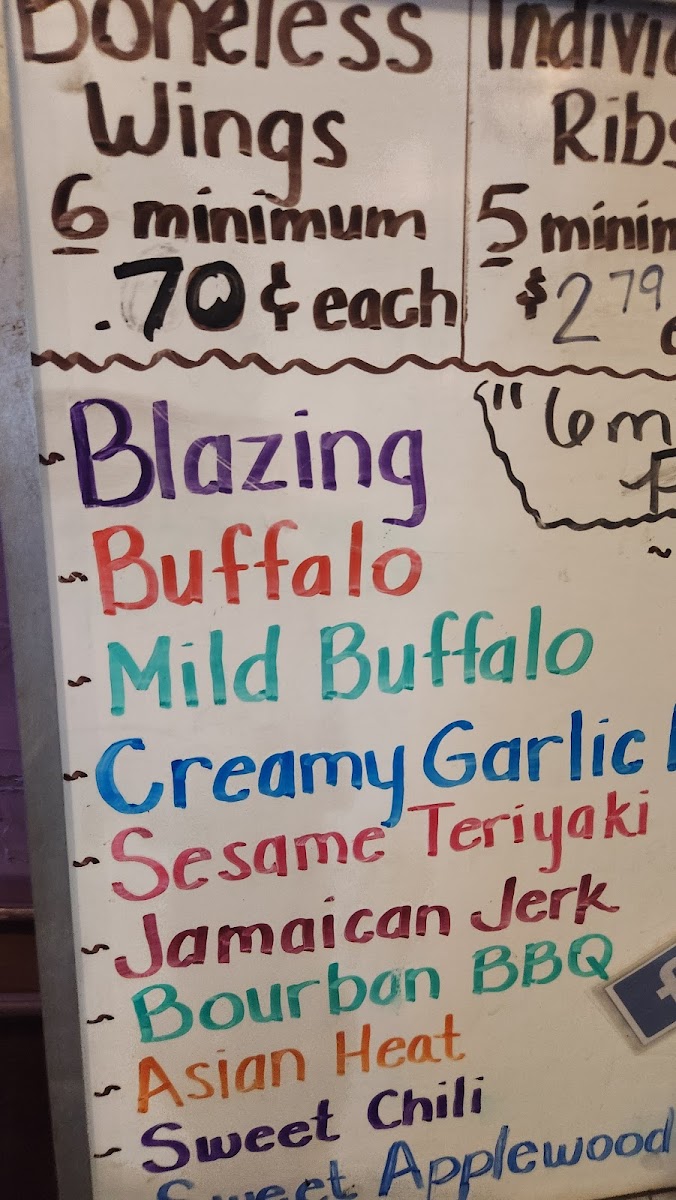 Boneless
Wings
6 minimum
.70 ¢ each
Ribs
5
$2.79
"6
Blazing
Buffalo
Mild Buffalo
Creamy Garlic
Sesame Teriyaki
Jamaican Jerk
Bourbon BBQ
Asian Heat
Sweet Chili
Sweet Applewood